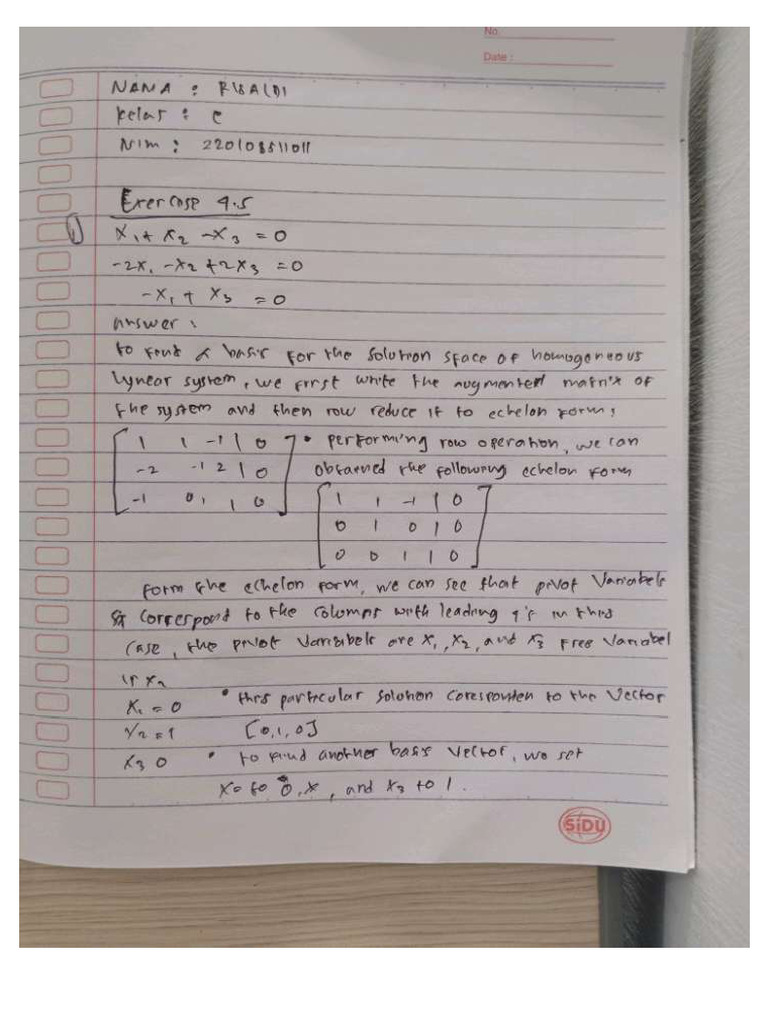 No.
Date :
NAMA : RISALDI
Kelas : C
NIM : 220108511011
Exercose 4.5
1) x₁ + x₂ - x₃ = 0
-2x₁ - x₂ + 2x₃ = 0
-x₁ + x₃ = 0
answer :
to find a basis for the solution space of homogeneous
lynear system, we first write the augmented matrix of
the system and then row reduce it to echelon form :
[ 1 1 -1 | 0
-2 -1 2 | 0
-1 0 1 | 0 ]
• performing row operation, we can
obtained the following echelon form
[ 1 1 -1 | 0
0 1 0 | 0
0 0 1 | 0 ]
form the echelon form, we can see that pivot Variabels
correspond to the columns with leading 1's in this
case, the pivot variabels are x₁, x₂, and x₃ free variabel
is x₂
x₁ = 0
x₂ = 1
x₃ 0
• this particular solution coresponden to the vector
[0,1,0]
• to find another basis vector, we set
x₂ to 0, x, and x₃ to 1.
SiDU